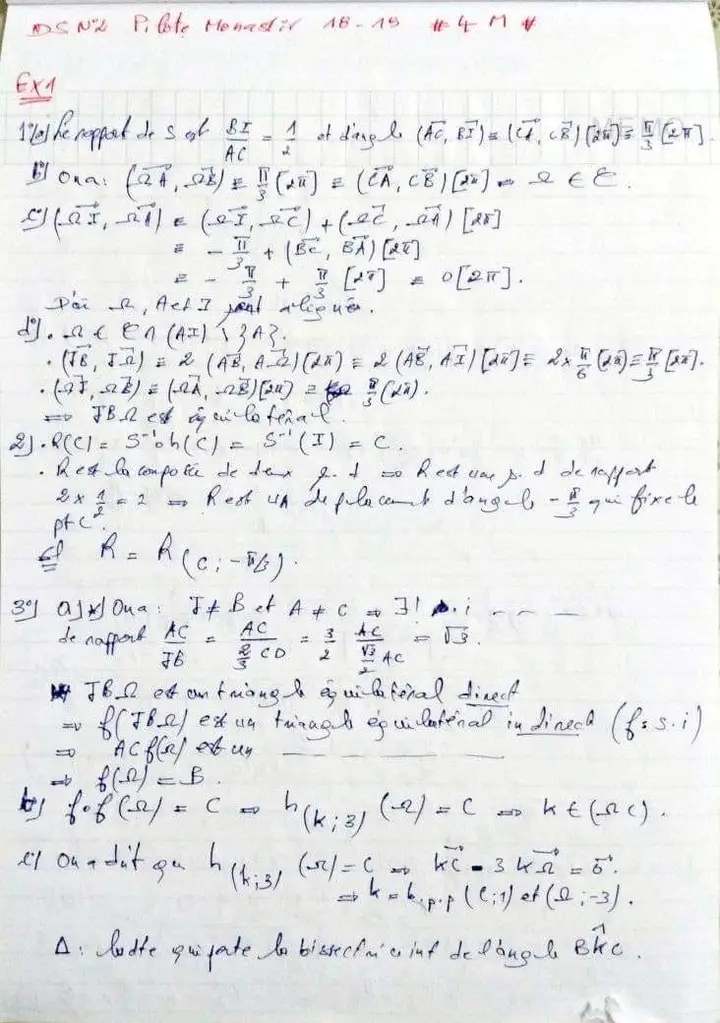 DS N°2 Pilote Monastir 18-19 # 4 M #
EX1
1°/a) Le rapport de S est BI/AC = 1/2 et d'angle (AC→, BI→) ≡ (CA→, CB→) [2π] ≡ π/3 [2π].
b) On a : (ΩA→, ΩB→) ≡ π/3 [2π] ≡ (CA→, CB→) [2π] ⇒ Ω ∈ C.
c) (ΩI→, ΩA→) ≡ (ΩI→, ΩC→) + (ΩC→, ΩA→) [2π]
≡ - π/3 + (BC→, BA→) [2π]
≡ - π/3 + π/3 [2π] ≡ 0 [2π].
D'où Ω, A et I sont alignés.
d°). Ω ∈ C ∩ (AI) \ {A}.
. (JB→, JΩ→) ≡ 2 (AB→, AΩ→) (2π) ≡ 2 (AB→, AI→) [2π] ≡ 2 × π/6 (2π) ≡ π/3 [2π].
. (ΩJ→, ΩB→) ≡ (ΩA→, ΩB→) [2π] ≡ π/3 (2π).
⇒ JBΩ est équilatéral.
2). R(C) = S⁻¹oh(C) = S⁻¹(I) = C.
. R est la composée de deux s. d ⇒ R est une s. d de rapport
2 × 1/2 = 1 ⇒ R est un déplacement d'angle - π/3 qui fixe le
pt C.
cl R = R(C ; -π/3).
3°) a) On a : J ≠ B et A ≠ C ⇒ ∃! s. i - - -
de rapport AC/JB = AC/(2/3 CO) = 3/2 AC/(√3/2 AC) = √3.
JBΩ est un triangle équilatéral direct
⇒ f(JBΩ) est un triangle équilatéral indirect (f : s. i)
⇒ ACf(Ω) est un ————
⇒ f(Ω) = B.
b) f∘f(Ω) = C ⇒ h(K ; 3) (Ω) = C ⇒ K ∈ (ΩC).
c) On a dit que h(K ; 3) (Ω) = C ⇒ KC→ - 3 KΩ→ = 0→.
⇒ K = b.p.p (C ; 1) et (Ω ; -3).
Δ : la dte qui porte la bissectrice int de l'angle BK̂C.